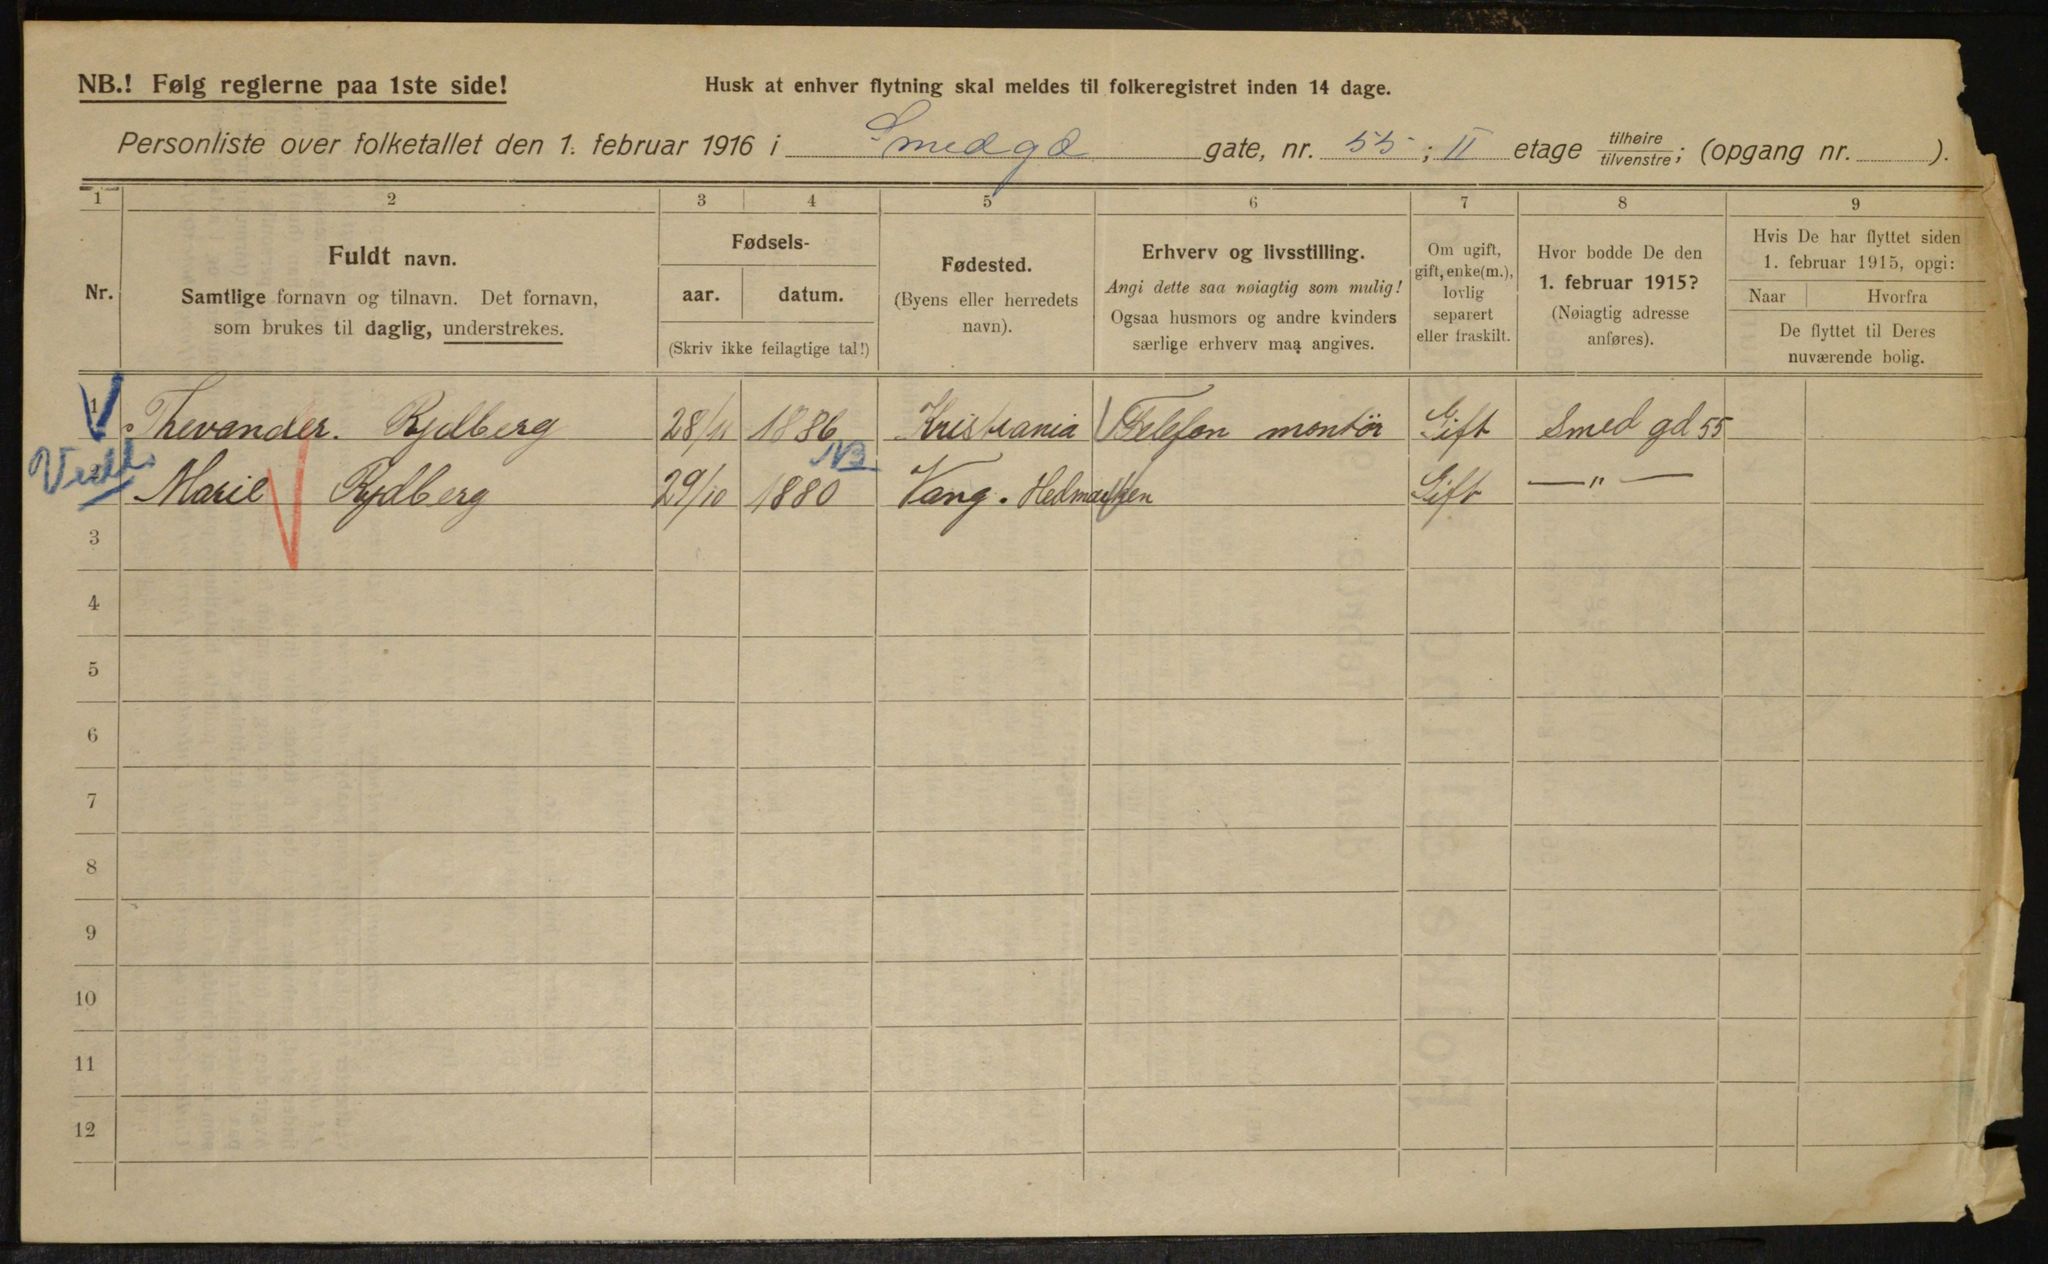 NB.! Følg reglerne paa 1ste side!
Husk at enhver flytning skal meldes til folkeregistret inden 14 dage.
Personliste over folketallet den 1. februar 1916 i Smedgd gate, nr. 55 ; II etage tilhøire/tilvenstre; (opgang nr. ).
1 2 3 4 5 6 7 8 9
Nr.
Fuldt navn.
Samtlige fornavn og tilnavn. Det fornavn,
som brukes til daglig, understrekes.
Fødsels-
aar. datum.
(Skriv ikke feilagtige tal!)
Fødested.
(Byens eller herredets
navn).
Erhverv og livsstilling.
Angi dette saa nøiagtig som mulig!
Ogsaa husmors og andre kvinders
særlige erhverv maa angives.
Om ugift,
gift, enke(m.),
lovlig
separert
eller fraskilt.
Hvor bodde De den
1. februar 1915?
(Nøiagtig adresse
anføres).
Hvis De har flyttet siden
1. februar 1915, opgi:
Naar Hvorfra
De flyttet til Deres
nuværende bolig.
1 Thevander. Rydberg 28/11 1886 Kristiania Telefon montør Gift Smed gd 55
NB
Marie Rydberg 29/10 1880 Vang. Hedmarken Gift — " —
3
4
5
6
7
8
9
10
11
12